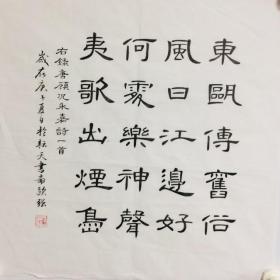 東甌傳舊俗
風日江邊好
何處樂神聲
夷歌出煙島
右錄唐顧況永嘉詩一首
歲在庚子夏日於